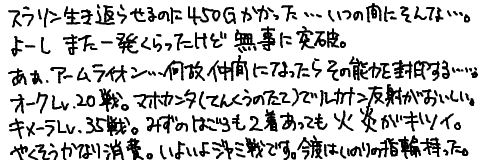 スラリン生き返らせるのに450Gかかった…いつの間にそんな…。
よーし また一発くらったけど 無事に突破。
ああ、アームライオン…何故仲間になったらその能力を封印する……。
オークLv.20戦。マホカンタ(てんくうのたて)でルカナン反射がおいしい。
キメーラLv.35戦。みずのはごろも2着あっても火炎がキツイ。
やくそうかなり消費。いよいよジャミ戦です。今度はいのりの指輪持った。